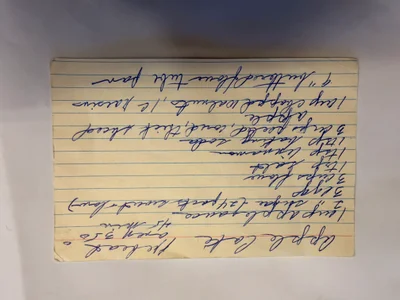 Apple Cake Preheat
oven 350
45 min
1 cup applesauce
sugar (24 packs sweet + low)
3 eggs
3 cups flour
1 tsp salt
1 tsp cinnamon
1 tsp baking soda
3 peeled, cored, thick sliced
apple
1 cup chopped walnuts, 1 c raisins
9" buttered/flour tube pan